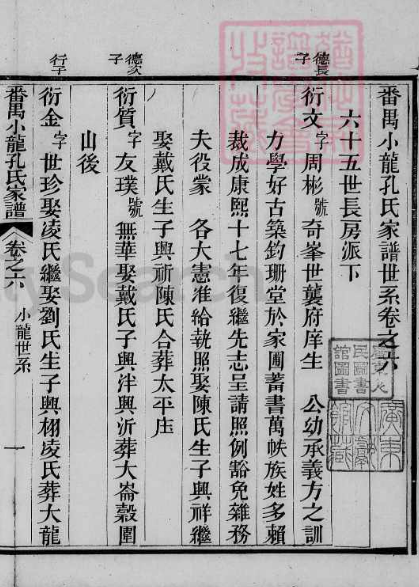 番禺小龍孔氏家譜世系卷之六
六十五世長房派下
德長子
衍文字周彬號奇峯世襲府庠生 公幼承義方之訓
力學好古築鈞珊堂於家圃蓄書萬帙族姓多賴
裁成康熙十七年復繼先志呈請照例豁免雜務
夫役蒙 各大憲准給執照娶陳氏生子興祥繼
娶戴氏生子興祈陳氏合葬太平庒
德次子
衍質字友璞號無華娶戴氏子興泮興沂葬大崙穀圍
山後
行子
衍金字世珍娶凌氏繼娶劉氏生子興栩凌氏葬大龍
番禺小龍孔氏家譜
卷之六
小龍世系
一
廣東人民圖書館圖書